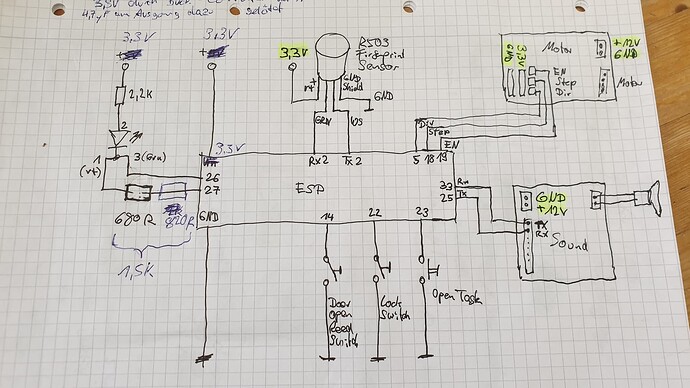 4,7µF am Ausgang dazu gelötet
3,3V
3,3V
3,3V
R503
Fingerprint
Sensor
GND
Shield
rt
GND
GRN
2,2K
2
1
(rt)
3 (Grn)
3.3V
26
27
GND
680R
820R
1,5K
Rx2
Tx2
ESP
5
18
19
Dir
Step
EN
33
25
Rx
Tx
14
22
23
Door
Open
Reed
Switch
Lock
Switch
Open Taste
Motor
GND
3,3V
+12V
GND
EN
Step
Dir
Motor
GND
+12V
TX
RX
Sound